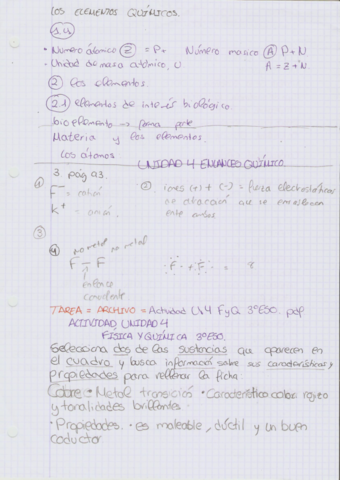 LOS ELEMENTOS QUÍMICOS.
1.4
• Número atómico Z = P+ Número masico A P+N
• Unidad de masa atómica, U A = Z + N.
2 Los elementos.
2.1 elementos de interés biológico
bioelemento → forma parte
Materia y los elementos.
Los átomos.
UNIDAD 4 ENLANCEO QUÍMICO.
3. pág 93.
1 F⁻ = 
K⁺ = 
2 iones (+) + (-) = fuerza electrostáticas
de atracción que se
entre ambos
3
4 no metal no metal
F — F
enlace
covalente
F + F =
TAREA = ARCHIVO = Actividad U.4 FyQ 3ºESO. pdf
ACTIVIDAD UNIDAD 4
FÍSICA Y QUÍMICA 3ºESO.
Selecciona dos de las sustancias que aparecen en
el cuadro y busca información sobre sus características,
propiedades para rellenar la ficha
Cobre: • Metal transición • Característica color rojizo
y tonalidades brillantes.
• Propiedades. • es maleable, dúctil y un buen
coductor